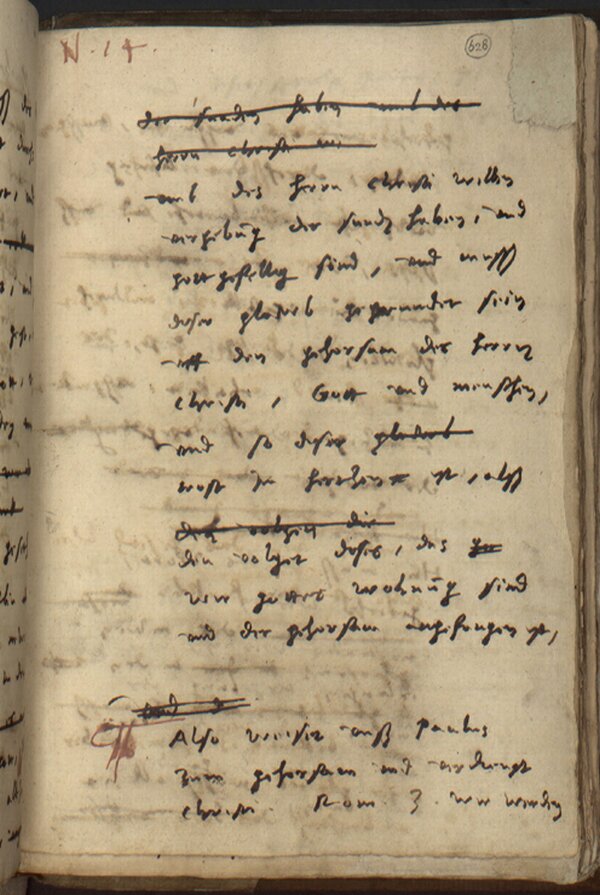 N. 14.
628
der sunden haben umb des
herrn Christi wi
umb des herrn Christi willen
vergebung der sund haben, und
gott gefellig sind, und muss
diser glaub gegrundet sein
uff den gehorsam des herrn
Christi, Gott und menschen,
und so diser glaub
trost im hertzen ist, alss
den volget dises, das
wir gottes wohnung sind
und der gehorsam angefangen ist,
Also weiset unss Paulus
zum gehorsam und
Christi Rom. 3. wir werden